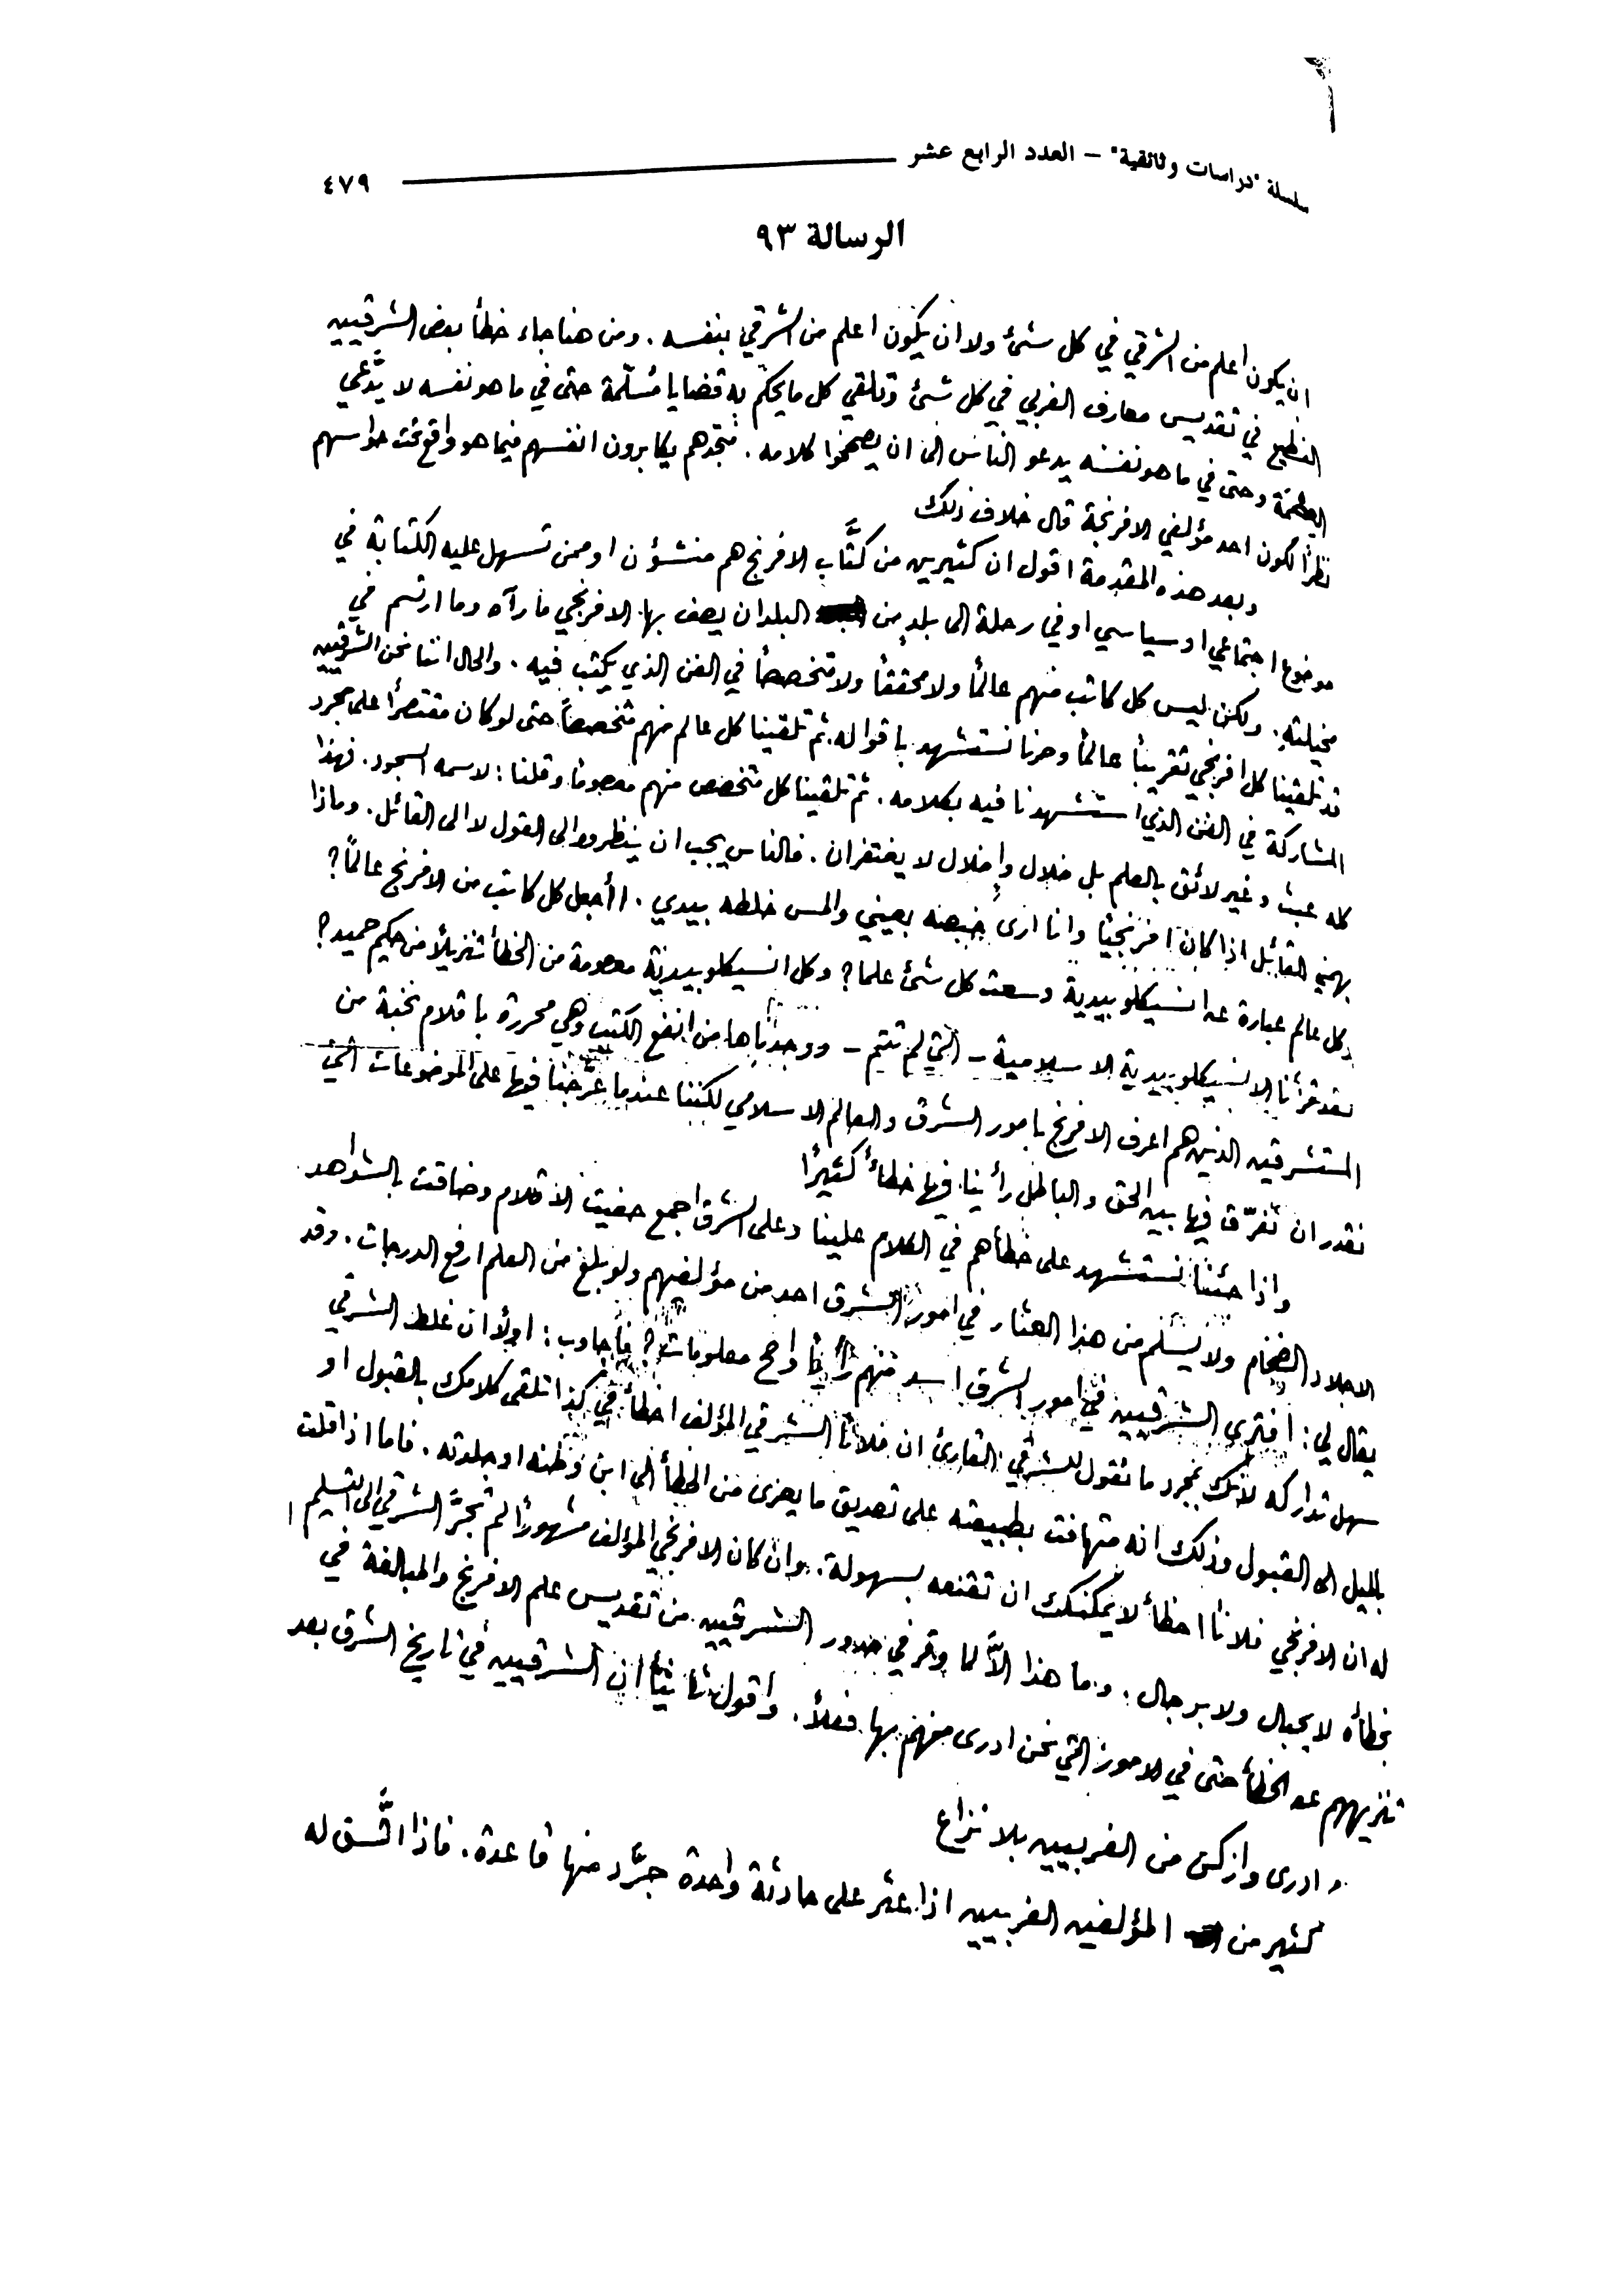 سلسلة "دراسات وثائقية" – العدد الرابع عشر
٤٧٩
الرسالة ٩٣
ان يكون اعلم من الشرقي في كل شئ ولا ان يكون اعلم من الشرقي بنفسه . ومن هنا جاء خطأ بعض الشرقيين
الفظيع في تقديس معارف الغربي في كل شئ وتلقي كل ما يحكم به قضايا مُسَلّمة حتى في ما هو نفسه لا يدَّعي
وحتى في ما هو نفسه يدعو الناس الى ان يصححوا كلامه . فتجدهم يكابرون انفسهم فيما هو واقع تحت حواسهم
نظراً لكون احد مؤلفي الافرنجة قال خلاف ذلك
وبعد هذه المقدمة اقول ان كثيرين من كتَّاب الافرنج هم منشؤن او ممن تسهل عليه الكتابة في
موضوع اجتماعي او سياسي او في رحلة الى بلدٍ من البلدان يصف بها الافرنجي ما رآه وما ارتسم في
مخيلته . ولكن ليس كل كاتب منهم عالماً ولا محققاً ولا متخصصاً في الفن الذي يكتب فيه . والحال اننا نحن الشرقيين
قد تلقينا كل افرنجي تقريباً عالماً وصرنا نستشهد باقواله . ثم تلقينا كل عالم منهم متخصصاً حتى لو كان مقتصراً على مجرد
المشاركة في الفن الذي استشهدنا فيه بكلامه . ثم تلقينا كل متخصص منهم معصوماً وقلنا : لاسمه السجود . فهذا
كله عبث وغير لائق بالعلم بل ضلال وإضلال لا يغتفران . فالناس يجب ان ينظروا الى القول لا الى القائل . وماذا
يهمني القائل اذا كان افرنجياً وانا ارى خبصه بعيني والمس خلطه بيدي . أأجعل كل كاتب من الافرنج عالماً ؟
وكل عالم عبارة عن انسيكلوبيدية وسعت كل شئ علما ؟ وكل انسيكلوبيدية معصومة من الخطأ تنزيلاً من حكيم حميد ؟
لقد قرأنا الانسيكلوبيدية الاسلامية – التي لم تتم – ووجدناها من انفع الكتب وهي محررة باقلام نخبة من
المستشرقين الذين هم اعرف الافرنج بامور الشرق والعالم الاسلامي لكننا عندما عرَّجنا فيها على الموضوعات التي
نقدر ان نفرّق فيها بين الحق والباطل رأينا فيها خطأً كثيراً
واذا جئنا نستشهد على خطأهم في الكلام علينا وعلى الشرق اجمع حفيت الاقلام وضاقت بالشواهد
الاجلاد الضخام ولا يسلم من هذا العثار في امور الشرق احد من مؤلفيهم ولو بلغ من العلم ارفع الدرجات . وقد
يقال لي : افترى الشرقيين في امور الشرق اسد منهم رأياً واصح معلومات ؟ فأجاوب : اولاً ان غلط الشرقي
سهل تداركه لأنك بمجرد ما تقول للشرقي القارئ ان فلاناً الشرقي المؤلف اخطأ في كذا تلقى كلامك بالقبول او
بالميل الى القبول وذلك انه متهافت بطبيعته على تصديق ما يعزى من الخطأ الى ابن وطنه او جلدته . فاما اذا قلت
له ان الافرنجي فلاناً اخطأ لا يمكنك ان تقنعه بسهولة . وان كان الافرنجي المؤلف مشهوراً لم تجرَّ الشرقي الى التسليم
بخطأه لا بحبال ولا برجال . وما هذا الاَّ لما وقر في صدور الشرقيين من تقديس علم الافرنج والمبالغة في
تنزيههم عن الخطأ حتى في الامور التي نحن ادرى منهم بها فعلاً . واقول ثانياً ان الشرقيين في تاريخ الشرق بعد
ادرى وازكن من الغربيين بلا نزاع
كثير من المؤلفين الغربيين اذا عثر على حادثة واحدة جرَّد منها قاعدة . فاذا اتَّسق له